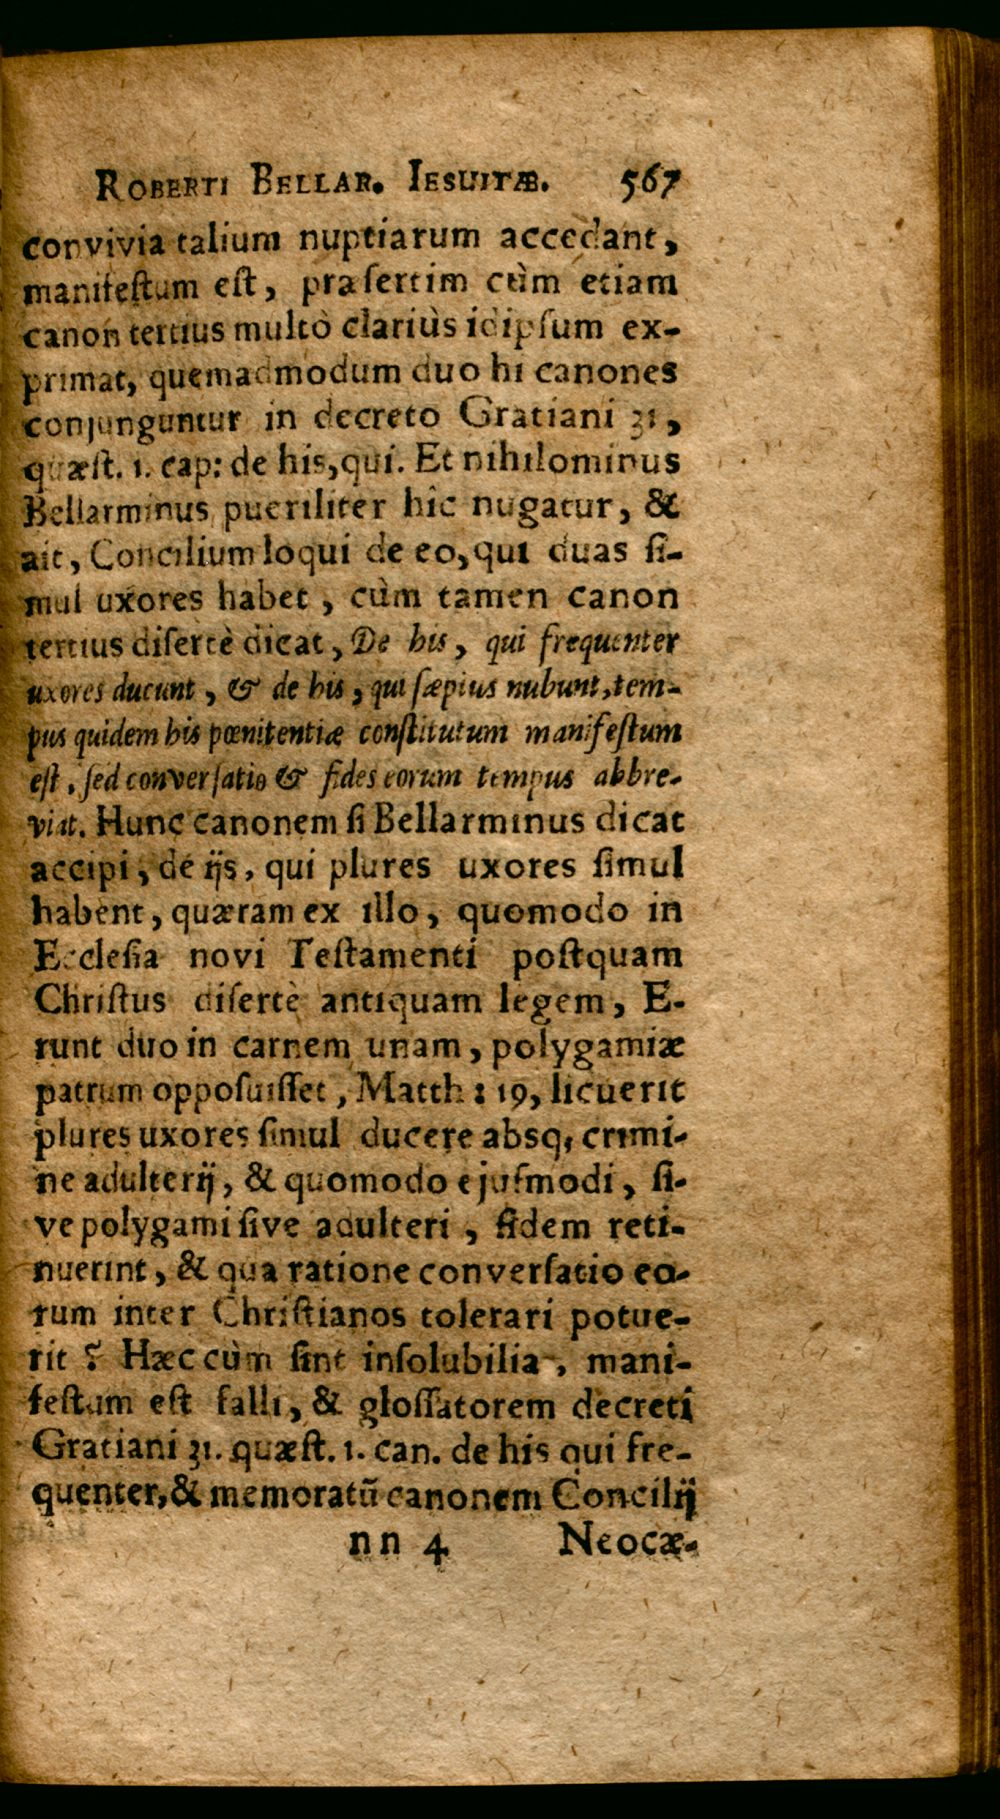 ROBERTI BELLAR. IESUITÆ. 567
convivia talium nuptiarum accedant,
manifestum est, præsertim cùm etiam
canon tertius multò clariùs idipsum ex-
primat, quemadmodum duo hi canones
conjunguntur in decreto Gratiani 31,
quæst. 1. cap: de his, qui. Et nihilominus
Bellarminus pueriliter hîc nugatur, &
ait, Concilium loqui de eo, qui duas si-
mul uxores habet, cùm tamen canon
tertius disertè dicat, De his, qui frequenter
uxores ducunt, & de his, qui sæpius nubunt, tem-
pus quidem his pœnitentiæ constitutum manifestum
est, sed conversatio & fides eorum tempus abbre-
viat. Hunc canonem si Bellarminus dicat
accipi, de ijs, qui plures uxores simul
habent, quæram ex illo, quomodo in
Ecclesia novi Testamenti postquam
Christus disertè antiquam legem, E-
runt duo in carnem unam, polygamiæ
patrum opposuisset, Matth: 19, licuerit
plures uxores simul ducere absq; crimi-
ne adulterij, & quomodo ejusmodi, si-
ve polygami sive adulteri, fidem reti-
nuerint, & qua ratione conversatio eo-
rum inter Christianos tolerari potue-
rit? Hæc cùm sint insolubilia, mani-
festum est falli, & glossatorem decreti
Gratiani 31. quæst. 1. can. de his qui fre-
quenter, & memoratũ canonem Concilij
nn 4 Neocæ-